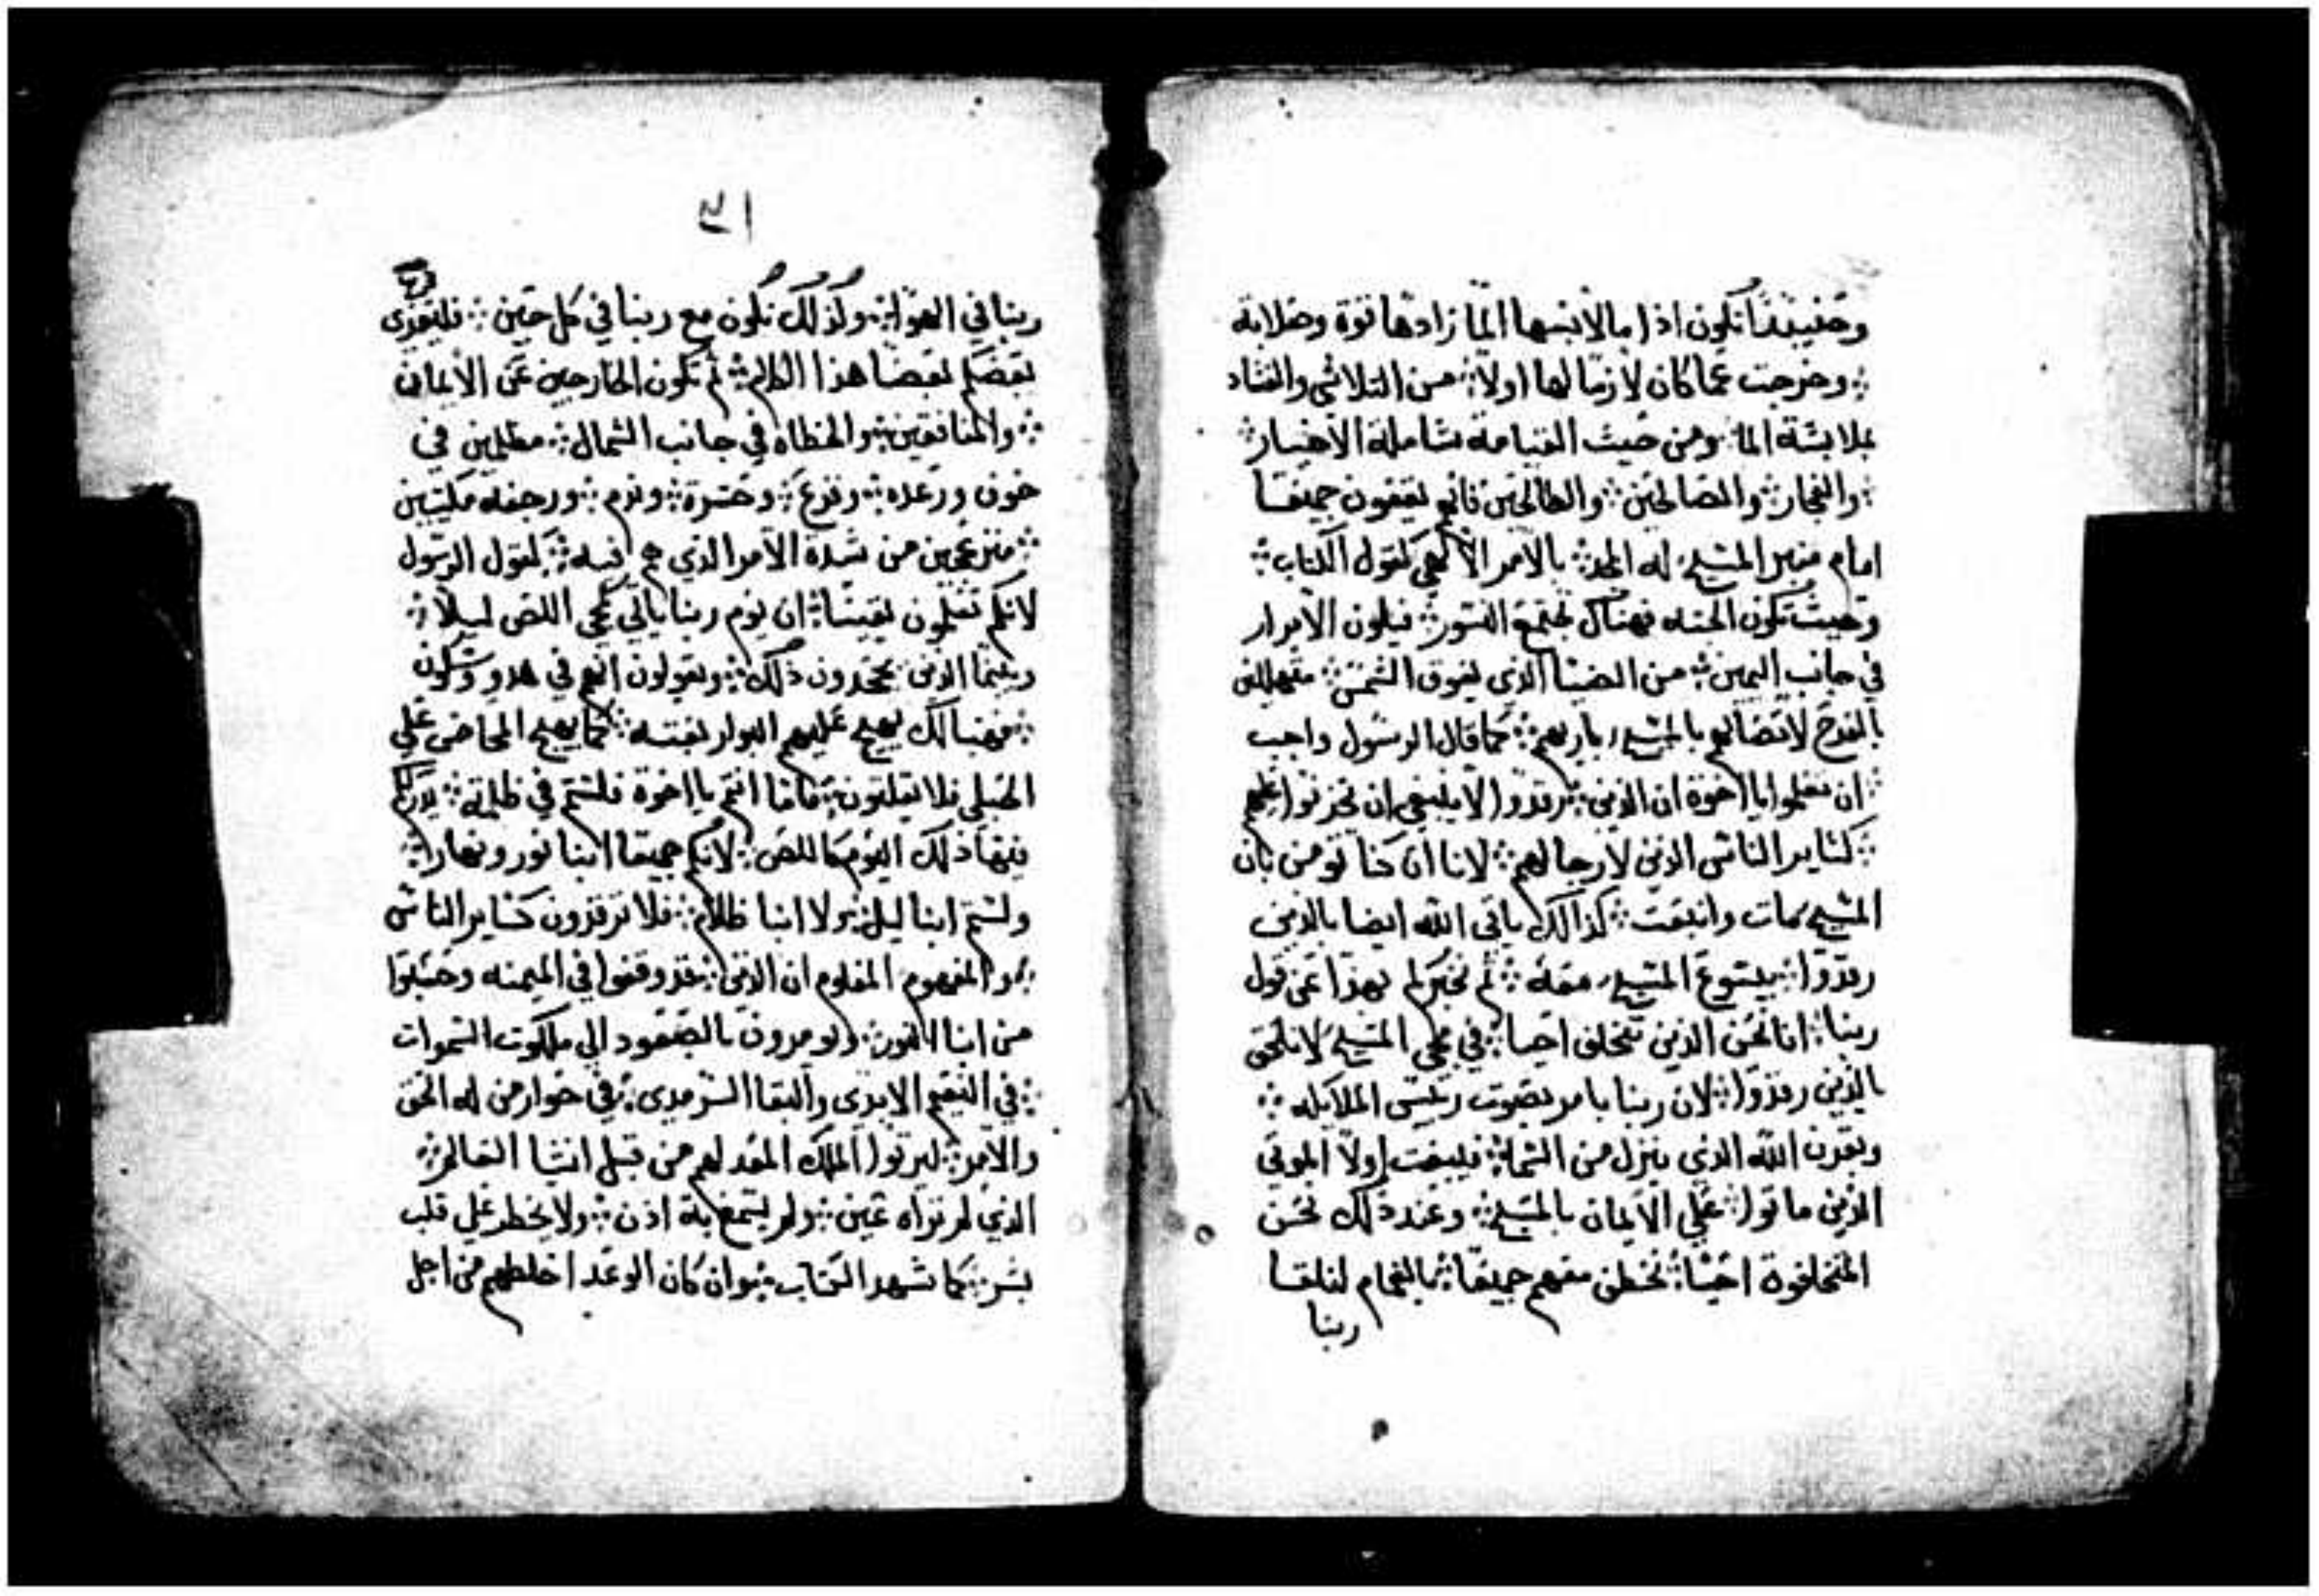 وحينيذ تكون اذا ما لابسها الما زادها قوة وصلابة
∴ وخرجت عما كان لازما لها اولا ∴ من التلاشي والفساد
بملابسة الما ومن حيث القيامة شاملة الاخيار ∴
∴ والفجار ∴ والصالحين ∴ والطالحين فانهم يقفون جميعا
امام منبر المسيح له المجد ∴ بالامر الالهي كقول الكتاب ∴
وحيث تكون الجثه فهناك تجتمع النسور ∴ فيكون الابرار
في جانب اليمين ∴ من الضيا الذي يفوق الشمس ∴ متهللين
بالفرح لاتصالهم بالمسيح باريهم ∴ كما قال الرسول واجب
∴ ان تعلموا يا اخوة ان الذين ∴ رقدوا لا ينبغي ان تحزنوا عليهم
∴ كساير الناس الذين لا رجا لهم ∴ لانا ان كنا نومن بان
المسيح مات وانبعث ∴ كذالك ياتي الله ايضا بالذين
رقدوا ∴ بيسوع المسيح معه ∴ ثم نخبركم بهذا عن قول
ربنا ∴ انا نحن الذين نتخلف احيا ∴ في مجي المسيح لا نلحق
بالذين رقدوا ∴ لان ربنا بامر بصوت رييس الملايكه ∴
وبقرن الله الذي ينزل من السما ∴ فيبعث اولا الموتي
الذين ماتوا ∴ علي الايمان بالمسيح ∴ وعند ذلك نحن
المتخلفون احيا ∴ نخطف معهم جميعا ∴ بالغمام لنلقا
ربنا
٣١
ربنا في الهوا ∴ وكذلك نكون مع ربنا في كل حين ∴ فليعزي
بعضكم بعضا هذا الكلام ∴ ثم تكون الخارجين عن الايمان
∴ والمنافقين ∴ والخطاه في جانب الشمال ∴ مظلمين في
خوف ورعده ∴ وفزع ∴ وحسرة ∴ وندم ∴ ورجفه مكتيبين
∴ منزعجين من شدة الامر الذي هم فيه ∴ كقول الرسول
لانكم تعلمون يقينا ∴ ان يوم ربنا ياتي كمجي اللص ليلا ∴
وبينما الذين يجحدون ذلك ∴ ويقولون انهم في هدو وسكون
∴ فهنالك يهيج عليهم البوار بغته ∴ كما يهيج المخاض علي
الحبلي فلا يفلتون ∴ فاما انتم يا اخوة فلستم في ظلمة ∴ يدرككم
فيها ذلك اليوم كاللص ∴ لانكم جميعا ابنا نور ونهار ∴
ولستم ابنا ليل ∴ ولا ابنا ظلام ∴ فلا ترقدون كساير الناس
∴ والمفهوم المعلوم ان الذين ∴ قد وقفوا في الميمنه وحسبوا
من ابنا النور ∴ ويومرون بالصعود الي ملكوت السموات
∴ في النعيم الابدي والبقا السرمدي ∴ في جوار من له الخلق
والامر ∴ ليرثوا الملك المعد لهم من قبل انشا العالم ∴
الذي لم تراه عين ∴ ولم يسمع به اذن ∴ ولا يخطر علي قلب
بشر ∴ كما شهد الكتاب ∴ وان كان الوعد اخلطهم من اجل